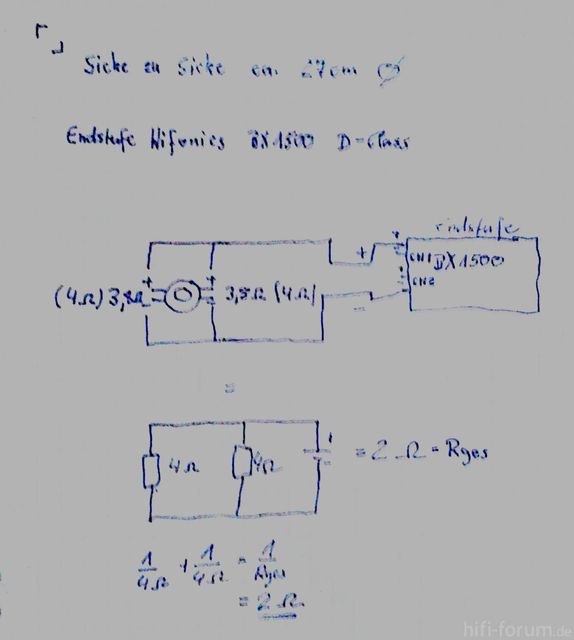 Sicke zu Sicke ca. 27cm Ø
Endstufe Hifonics BX1500 D-Class
Endstufe
+ +
CH1 BX1500
+ +
(4Ω) 3,8Ω 3,8Ω (4Ω)
CH2
-
=
4Ω 4Ω + = 2Ω = Rges
1/4Ω + 1/4Ω = 1/Rges
= 2Ω
hifi-forum.de